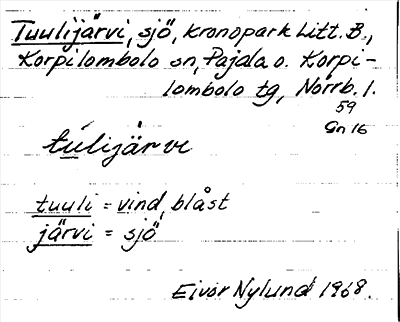 Tuulijärvi, sjö, kronopark Litt. B.,
Korpilombolo sn, Pajala o. Korpi-
lombolo tg, Norrb. l.
59
Gn 16
tùlijärve
tuuli = vind, blåst
järvi = sjö
Eivor Nylund 1968.